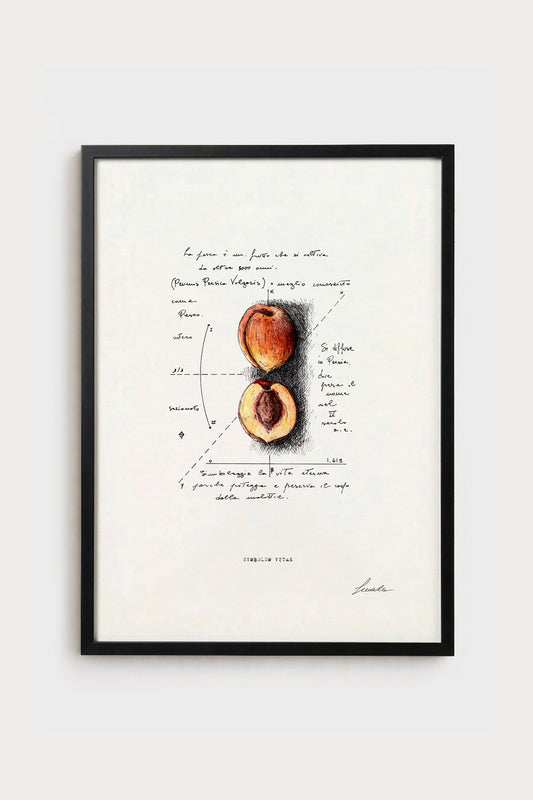 La pesca è un frutto che si coltiva
da oltre 5000 anni.
(Prunus Persica Vulgaris) è meglio conosciuta
come
Pesco.
intero
I
sezionato
II
x
y
Si diffuse
in Persia.
dove
prese il
nome
nel
IX
secolo
a.c.
0
1,618
Simboleggia la vita eterna
perché protegge e preserva il corpo
dalle malattie.
SYMBOLUM VITAE